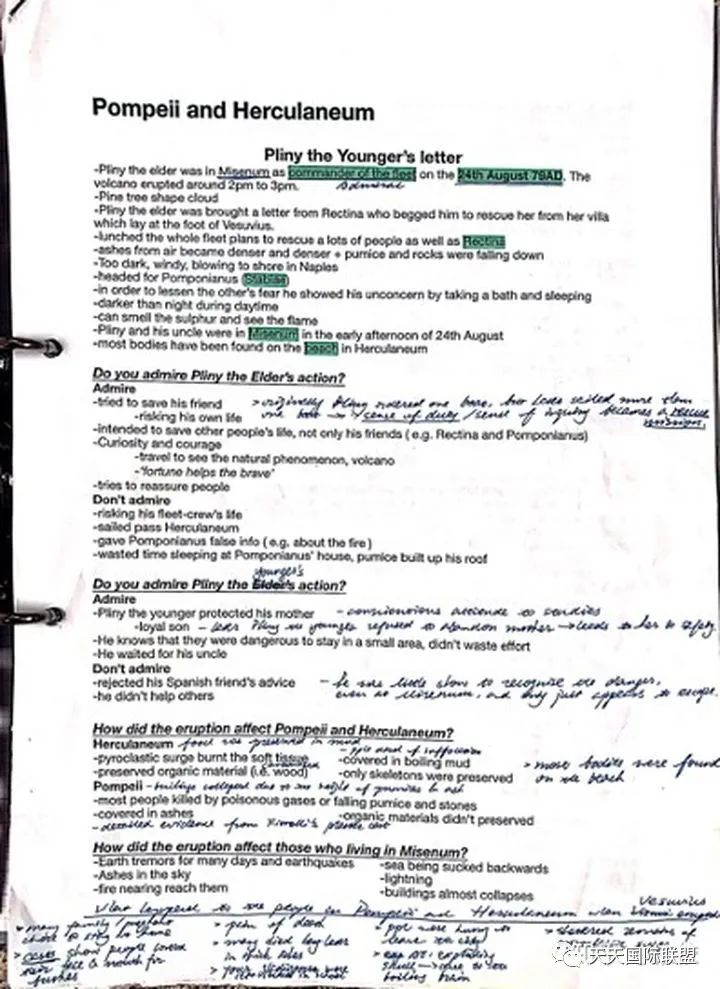 Pompeii and Herculaneum
Pliny the Younger's letter
-Pliny the elder was in Misenum as commander of the fleet on the 24th August 79AD. The
volcano erupted around 2pm to 3pm. admiral
-Pine tree shape cloud
-Pliny the elder was brought a letter from Rectina who begged him to rescue her from her villa
which lay at the foot of Vesuvius.
-lunched the whole fleet plans to rescue a lots of people as well as Rectina
-ashes from air became denser and denser + pumice and rocks were falling down
-Too dark, windy, blowing to shore in Naples
-headed for Pomponianus (Stabiae)
-in order to lessen the other's fear he showed his unconcern by taking a bath and sleeping
-darker than night during daytime
-can smell the sulphur and see the flame
-Pliny and his uncle were in Misenum in the early afternoon of 24th August
-most bodies have been found on the beach in Herculaneum
Do you admire Pliny the Elder's action?
Admire
-tried to save his friend > originally Pliny ordered one boat, but later sailed more than
-risking his own life one boat → sense of duty / sense of inquiry becomes a rescue
mission.
-intended to save other people's life, not only his friends (e.g. Rectina and Pomponianus)
-Curiosity and courage
-travel to see the natural phenomenon, volcano
-"fortune helps the brave"
-tries to reassure people
Don't admire
-risking his fleet-crew's life
-sailed pass Herculaneum
-gave Pomponianus false info (e.g. about the fire)
-wasted time sleeping at Pomponianus' house, pumice built up his roof
younger's
Do you admire Pliny the Elder's action?
Admire
-Pliny the younger protected his mother - conscientious attitude to studies
-loyal son - Pliny the younger refused to abandon mother → leads to her to safety
-He knows that they were dangerous to stay in a small area, didn't waste effort
-He waited for his uncle
Don't admire
-rejected his Spanish friend's advice - he was little slow to recognize the danger,
-he didn't help others even at Misenum, and only just appears to escape.
How did the eruption affect Pompeii and Herculaneum?
Herculaneum food was preserved in mud - ppl died of suffocation
-pyroclastic surge burnt the soft tissue -covered in boiling mud > most bodies were found
-preserved organic material (i.e. wood) -only skeletons were preserved on the beach
Pompeii - buildings collapsed due to the weight of pumice & ash
-most people killed by poisonous gases or falling pumice and stones
-covered in ashes -organic materials didn't preserved
- detailed evidence from Fiorelli's plaster cast
How did the eruption affect those who living in Misenum?
-Earth tremors for many days and earthquakes -sea being sucked backwards
-Ashes in the sky -lightning
-fire nearing reach them -buildings almost collapses
What happened to the people in Pompeii and Herculaneum when Vesuvius erupted
> many family / people > of death > ppl were trying to >
chose to stay in home > many died leave the city
> cases show people covered in their >
their face & mouth for boiling
天天国际联盟